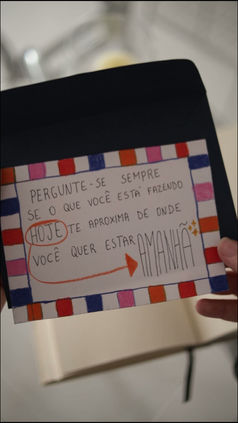 PERGUNTE-SE SEMPRE
SE O QUE VOCÊ ESTÁ FAZENDO
HOJE TE APROXIMA DE ONDE
VOCÊ QUER ESTAR AMANHÃ